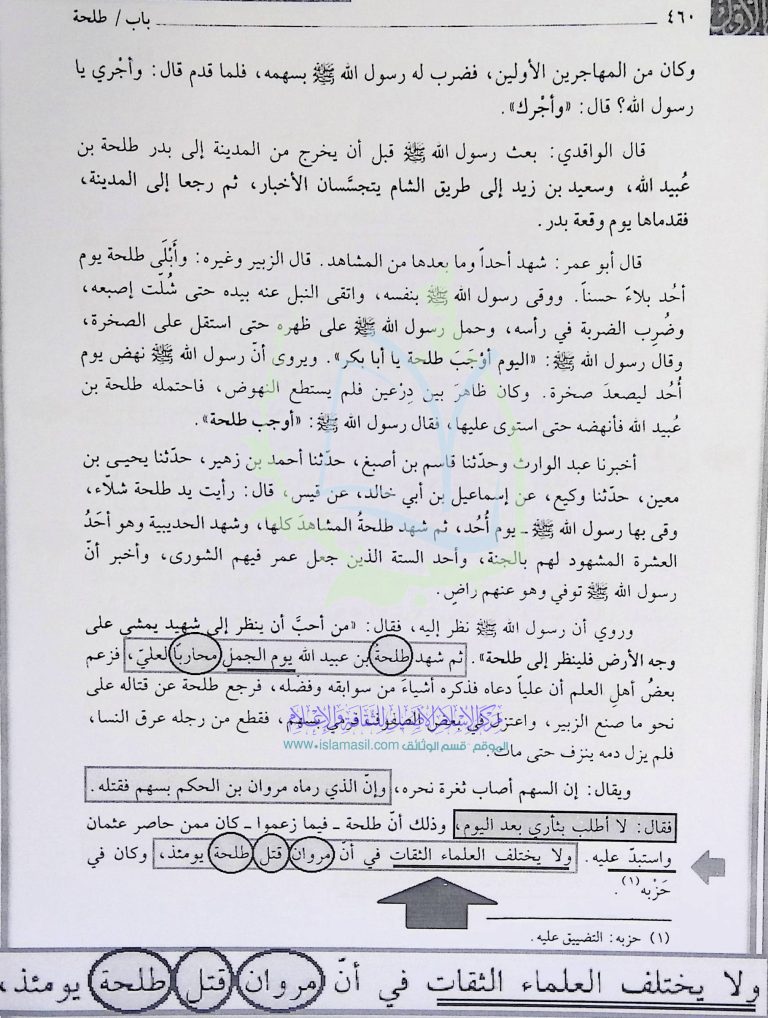 ٤٦٠ باب / طلحة
وكان من المهاجرين الأولين، فضرب له رسول الله ﷺ بسهمه، فلما قدم قال: وأجْري يا
رسول الله؟ قال: «وأجْرك».
قال الواقدي: بعث رسول الله ﷺ قبل أن يخرج من المدينة إلى بدر طلحة بن
عُبيد الله، وسعيد بن زيد إلى طريق الشام يتجسَّسان الأخبار، ثم رجعا إلى المدينة،
فقدماها يوم وقعة بدر.
قال أبو عمر: شهد أحداً وما بعدها من المشاهد. قال الزبير وغيره: وأَبْلَى طلحة يوم
أحُد بلاءً حسناً. ووقى رسول الله ﷺ بنفسه، واتقى النبل عنه بيده حتى شُلّت إصبعه،
وضُرِب الضربة في رأسه، وحمل رسول الله ﷺ على ظهره حتى استقل على الصخرة،
وقال رسول الله ﷺ: «اليوم أوْجَبَ طلحة يا أبا بكر». ويروى أنّ رسول الله ﷺ نهض يوم
أُحُد ليصعدَ صخرة. وكان ظاهرَ بين دِرْعين فلم يستطع النهوض، فاحتمله طلحة بن
عُبيد الله فأنهضه حتى استوى عليها، فقال رسول الله ﷺ: «أوجب طلحة».
أخبرنا عبد الوارث وحدّثنا قاسم بن أصبغ، حدّثنا أحمد بن زهير، حدّثنا يحيـى بن
معين، حدّثنا وكيع، عن إسماعيل بن أبي خالد، عن قيس، قال: رأيت يد طلحة شلّاء،
وقى بها رسول الله ﷺ ـ يوم أُحُد، ثم شهد طلحةُ المشاهدَ كلها، وشهد الحديبية وهو أحَدُ
العشرة المشهود لهم بالجنة، وأحد الستة الذين جعل عمر فيهم الشورى، وأخبر أنّ
رسول الله ﷺ توفي وهو عنهم راضٍ.
وروي أن رسول الله ﷺ نظر إليه، فقال: «من أحبَّ أن ينظر إلى شهيد يمشي على
وجه الأرض فلينظر إلى طلحة». ثم شهد طلحة بن عبيد الله يوم الجمل محارباً لعليّ، فزعم
بعضُ أهلِ العلم أن علياً دعاه فذكره أشياءَ من سوابقه وفضْله، فرجع طلحة عن قتاله على
نحو ما صنع الزبير، واعتزل في بعض الصفوف فرمي بسهم، فقطع من رجله عرق النسا،
فلم يزل دمه ينزف حتى مات.
الموقع - قسم الوثائق www.islamasil.com
ويقال: إن السهم أصاب ثغرة نحره، وإنّ الذي رماه مروان بن الحكم بسهم فقتله.
فقال: لا أطلب بثأري بعد اليوم، وذلك أنّ طلحة ـ فيما زعموا ـ كان ممن حاصر عثمان
واستبدّ عليه. ولا يختلف العلماء الثقات في أنّ مروان قتل طلحة يومئذ، وكان في
حَزْبه(١).
(١) حزبه: التضييق عليه.
ولا يختلف العلماء الثقات في أنّ مروان قتل طلحة يومئذ،